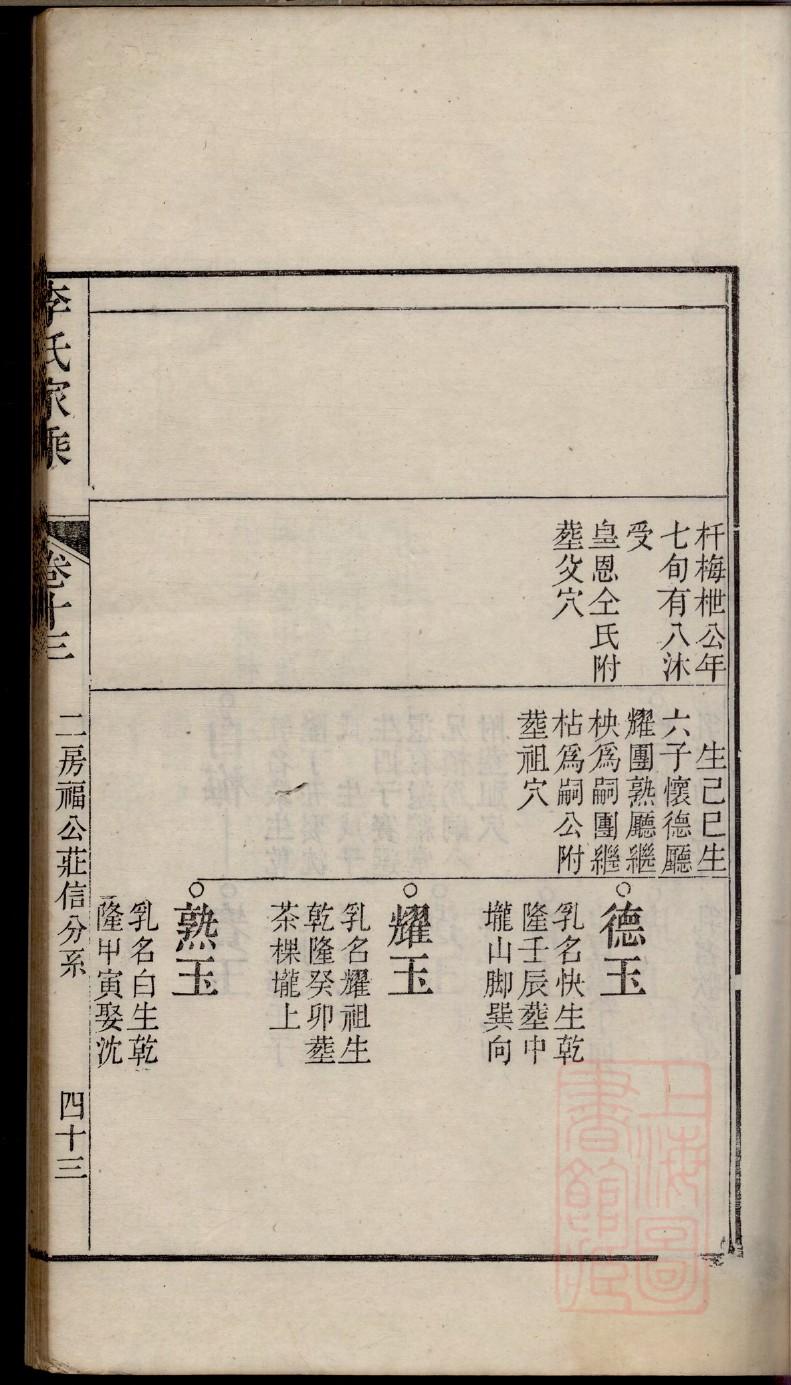 杆梅枻公年
七旬有八沐
受
皇恩仝氏附
塟父穴
生己巳生
六子懷德廳
耀團熟廳繼
柍爲嗣團繼
枯爲嗣公附
塟祖穴
德玉
乳名快生乾
隆壬辰塟中
壠山脚巽向
耀玉
乳名耀祖生
乾隆癸卯塟
茶棵壠上
熟玉
乳名白生乾
隆甲寅娶沈
李氏家乘
卷十三
二房福公莊信分系
四十三
上海圖
書館藏